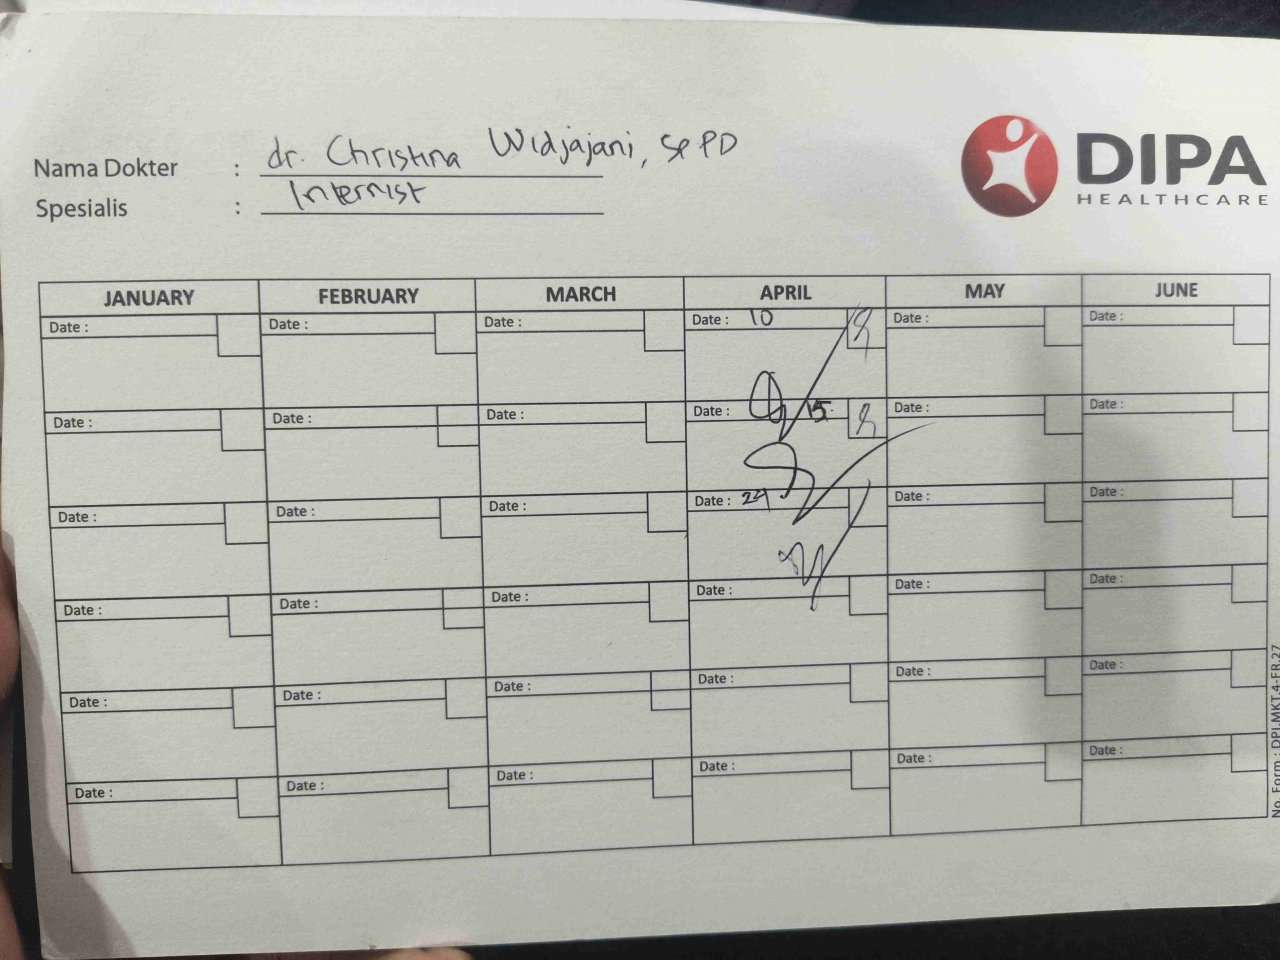 Nama Dokter : dr. Christina Widjajani, SpPD
Spesialis : Internist
DIPA
HEALTHCARE
JANUARY FEBRUARY MARCH APRIL MAY JUNE
Date : Date : Date : Date : 10 Date : Date :
Date : Date : Date : Date : 15 Date : Date :
Date : Date : Date : Date : 24 Date : Date :
Date : Date : Date : Date : Date : Date :
Date : Date : Date : Date : Date : Date :
Date : Date : Date : Date : Date : Date :
No. Form : DPI.MKT.4-FR-27